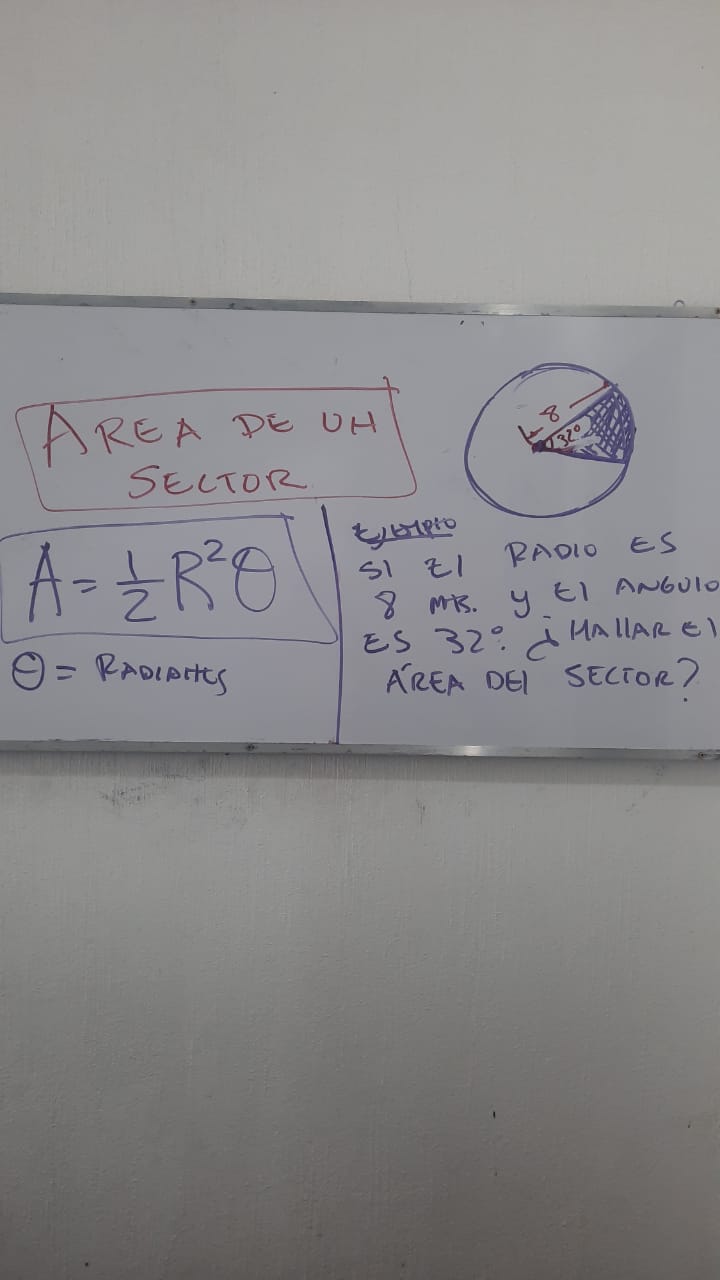 AREA DE UN
SECTOR
A = 1/2 R²θ
θ = RADIANTES
8
32°
Ejemplo
SI El RADIO ES
8 MTR. y El ANGUlO
ES 32°. ¿HAllAR El
ÁREA DEl SECTOR?